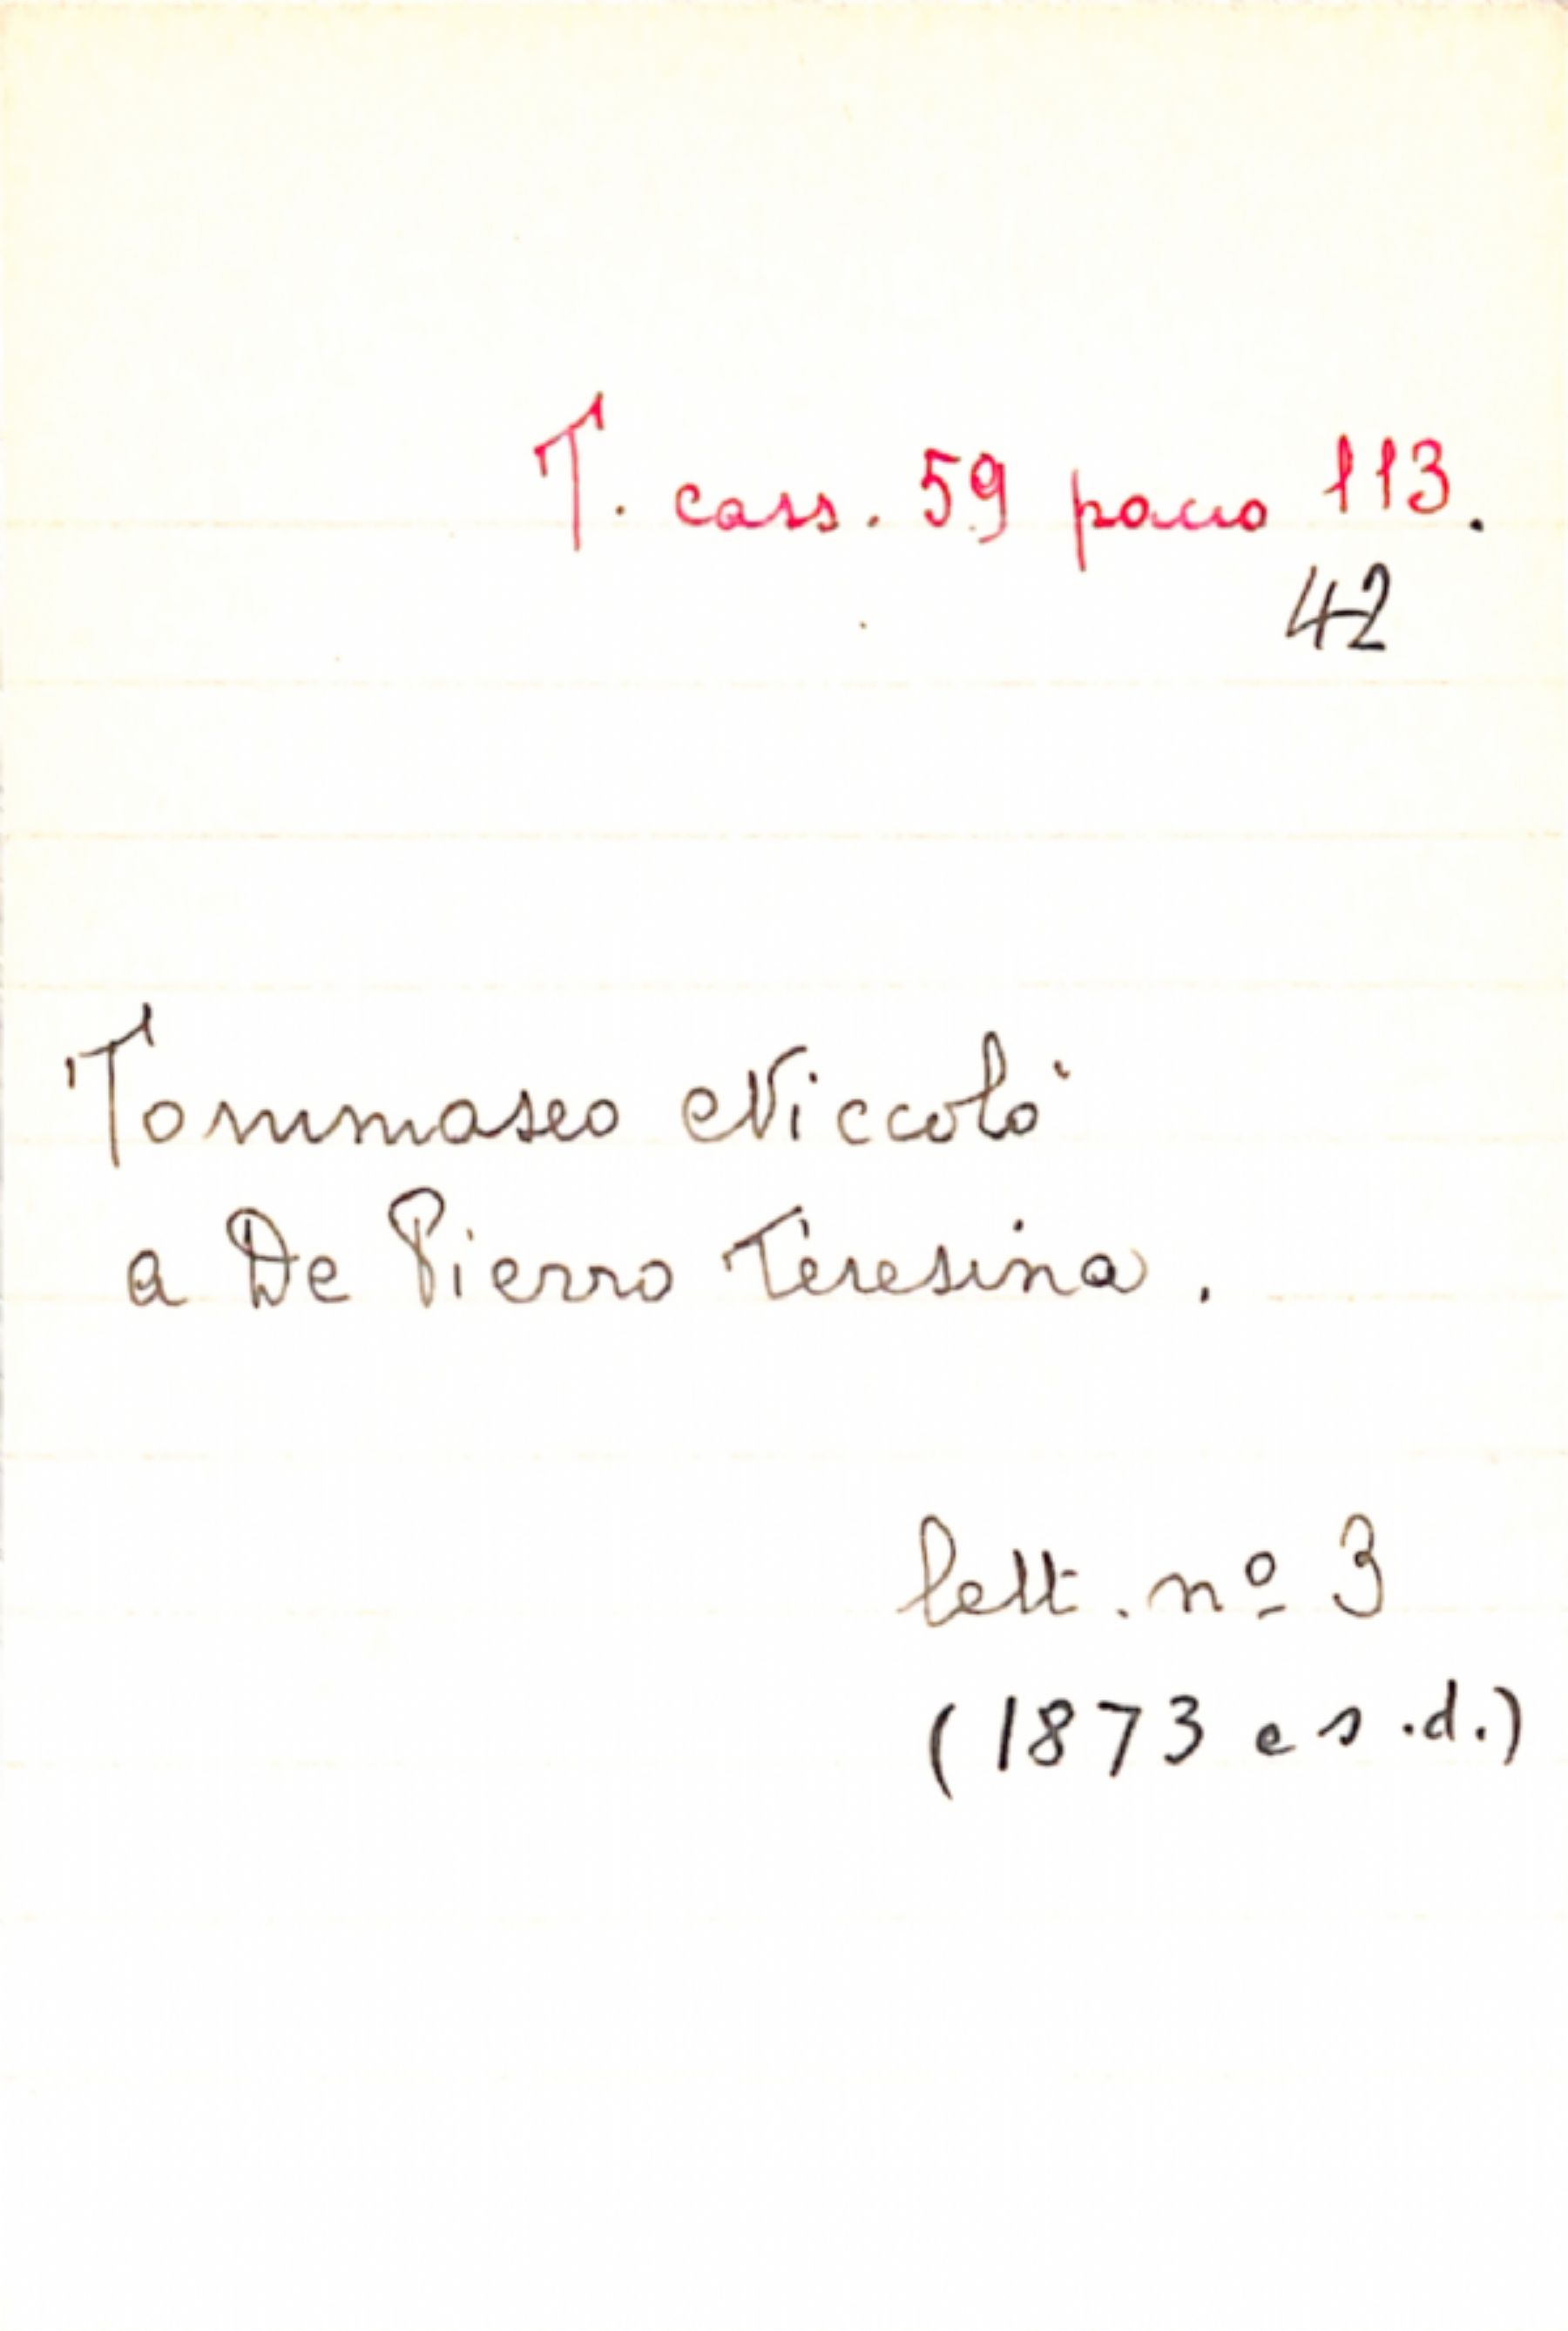 T. cass. 59 pacco 113.
42
Tommaseo Niccolò
a De Pierro Teresina.
lett. nº 3
(1873 e s.d.)